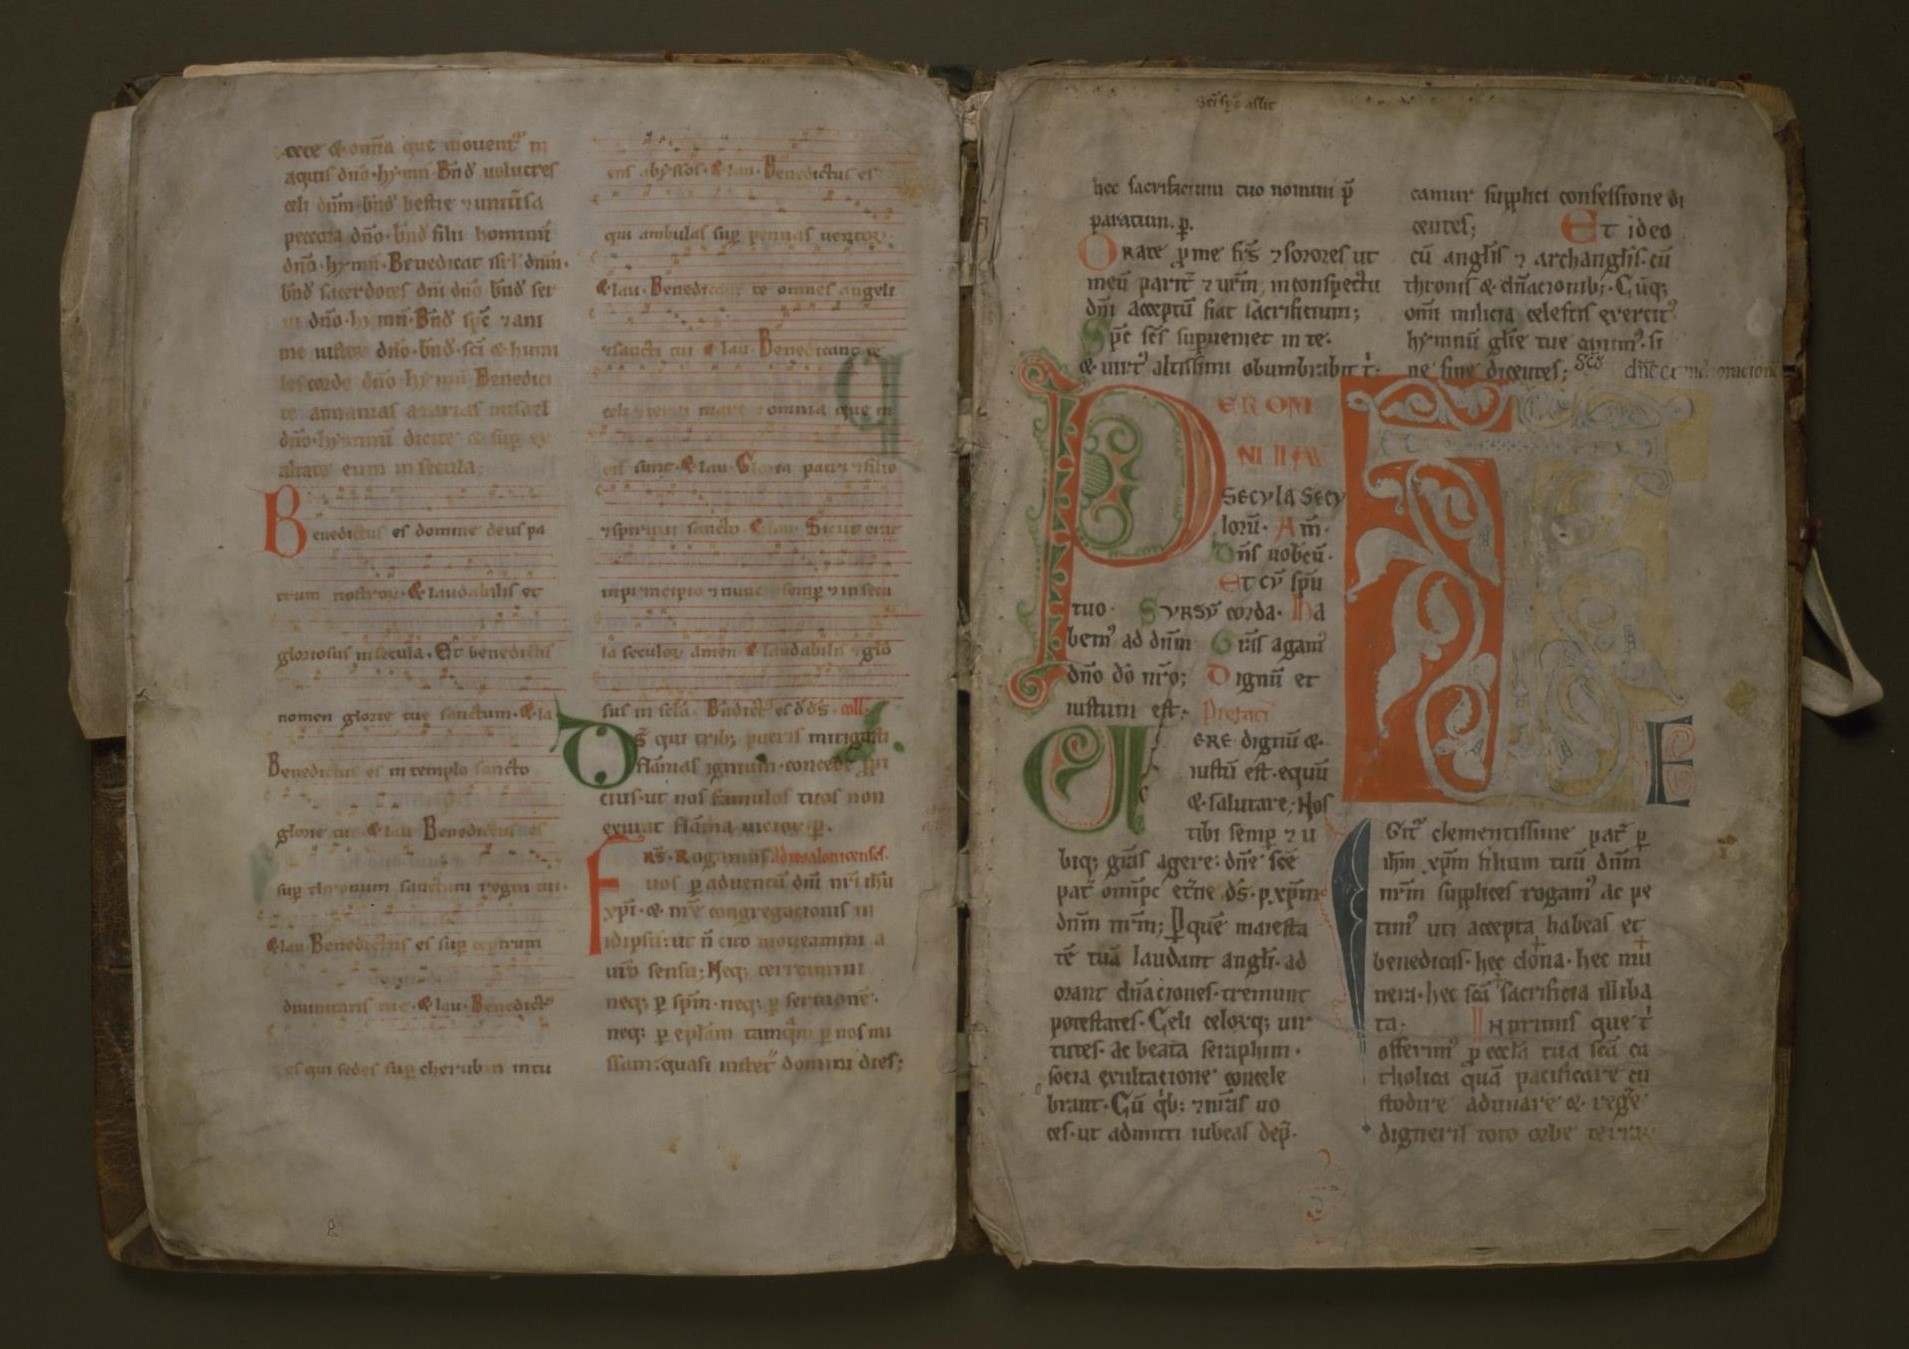 cete & om̄ia que mouent᷑ in
aquis dn̄o·hymn̄·Bn̄d uolucres
celi dn̄m·bn̄d bestie ⁊ uniūsa
peccora dn̄o·bn̄d filii hominū
dn̄o·hymn̄·Benedicat isrl̄ dn̄m·
bn̄d sacerdotes dn̄i dn̄o bn̄d ser
ui dn̄o·hymn̄·Bn̄d sp̄c ⁊ ani
me iustoꝝ dn̄o·bn̄d·sc̄i & humi
les corde dn̄o hymn̄ Benedici
te annanias azarias misael
dn̄o·hymnū dicite & suꝑ ex
altate eum in secula;
Benedictus es domine deus pa
trum nostroꝝ·& laudabilis et
gloriosus in secula·Et benedictū
nomen glorie tue sanctum·& la
Benedictus es in templo sancto
glorie tue & lau Benedictus es
suꝑ thronum sanctum regni tui·
& lau·Benedictus es suꝑ ceptrum
diuinitatis tue·& lau·Benedict᷒
es qui sedes suꝑ cherubin intu
ens abyssos·& lau·Benedictus es
qui ambulas suꝑ pennas uentoꝝ·
& lau·Benedicant te omnes angeli
⁊ sancti tui & lau·Benedicant te
celi ⁊ terra mare ⁊ omnia que in
eis sunt·& lau·Gloria patri ⁊ filio
⁊ spiritui sancto & lau·Sicut erat
in principio ⁊ nunc ⁊ semꝑ ⁊ in secu
la seculoꝝ amen & laudabilis ⁊ glo
sus in scl̄a· Bn̄dict᷒ es d̄ d̄s· coll;
Ds̄ qui trib; pueris mitigasti
flāmas ignium·concede ꝓpi
cius·ut nos famulos tuos non
exurat flāma uicioꝝ·ꝑ.
Frs̄·Rogamus ad tesalonicenses·
uos ꝑ aduentū dn̄i nr̄i ih̄u
xp̄i·& nr̄e congregacionis in
idipsū: ut n̄ cito moueamini a
ur̄o sensu; Neq; terreamini
neq; ꝑ sp̄m·neq; ꝑ sermonē·
neq; ꝑ epl̄am tamq̄m ꝑ nos mi
ssam: quasi instet domini dies;
sc̄i sp̄c assit
hec sacrificium tuo nomini p̄
paratum. ꝑ.
Orate ꝓ me fr̄s ⁊ sorores ut
meū parit᷑ ⁊ ur̄m, in conspectu
dn̄i acceptū fiat sacrificium;
Sp̄c sc̄s superueniet in te·
& uirt᷒ altissimi obumbrabit t̄·
PER OM
NIA
SECVLA SECV
lorū· Am̄·
Dn̄s uobcū·
Et cū sp̄u
tuo· SVRSV̄ corda· Ha
bem᷒ ad dn̄m· Gr̄as agam᷒
dn̄o dō nr̄o; Dignū et
iustum est· Prefaci
ERE dignū &
iustū est·equū
& salutare; Nos
tibi semꝑ ⁊ u
biq; gr̄as agere: dn̄e sc̄e
pat̄ omīpc̄ et̄ne d̄s·ꝑ xp̄m
dn̄m nr̄m; Pquē maiesta
tē tuā laudant angl̄i·ad
orant dn̄aciones·tremunt
potestates·Celi celorq; uir
tutes·ac beata seraphim·
socia exultacione concele
brant·Cū qͥb; ⁊ nr̄as uo
ces·ut admitti iubeas dep̄·
camur supplici confessione di
centes; Et ideo
cū angl̄is ⁊ archangl̄is·cū
thronis & dn̄acionib;·Cūq;
om̄i milicia celestis exercit᷒
hymnū gl̄ie tue canim᷒·si
ne fine dicentes; Sc̄s dn̄e exaudi oracionē
TE
Git᷑ clementissime pat̄ ꝑ
ih̄m xp̄m filium tuū dn̄m
nr̄m supplices rogam᷒ ac pe
tim᷒ uti accepta habeas et
benedicas·hec dona·hec mu
nera·hec sc̄a sacrificia illiba
ta· Inprimis que t̄
offerim᷒ ꝓ eccl̄a tua sc̄a ca
tholica quā pacificare cu
stodire adunare & regē
digneris toto orbe terraꝝ